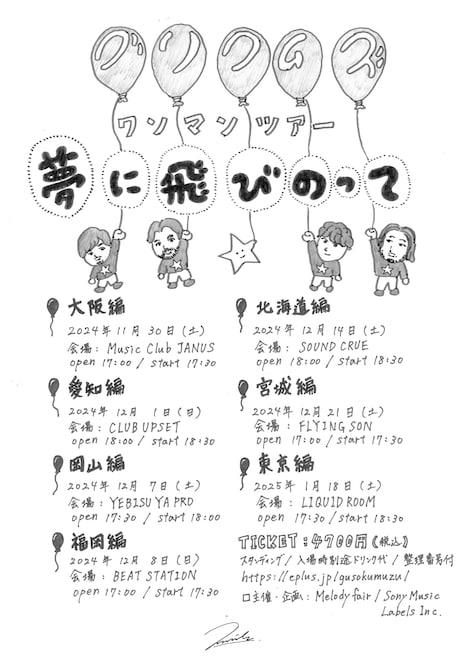 グソクムズ
ワンマンツアー
夢に飛びのって
大阪編
2024年11月30日(土)
会場: Music Club JANUS
open 17:00 / start 17:30
愛知編
2024年 12月 1日(日)
会場: CLUB UPSET
open 18:00 / start 18:30
岡山編
2024年 12月 7日(土)
会場: YEBISU YA PRO
open 17:30 / start 18:00
福岡編
2024年 12月 8日(日)
会場: BEAT STATION
open 17:00 / start 17:30
北海道編
2024年 12月14日(土)
会場: SOUND CRUE
open 18:00 / start 18:30
宮城編
2024年 12月21日(土)
会場: FLYING SON
open 17:00 / start 17:30
東京編
2025年 1月 18日(土)
会場: LIQUID ROOM
open 17:30 / start 18:30
TICKET: 4700円(税込)
スタンディング / 入場時別途ドリンク代 / 整理番号付
https://eplus.jp/gusokumuzu/
□主催・企画: Melody fair / Sony Music
Labels Inc.